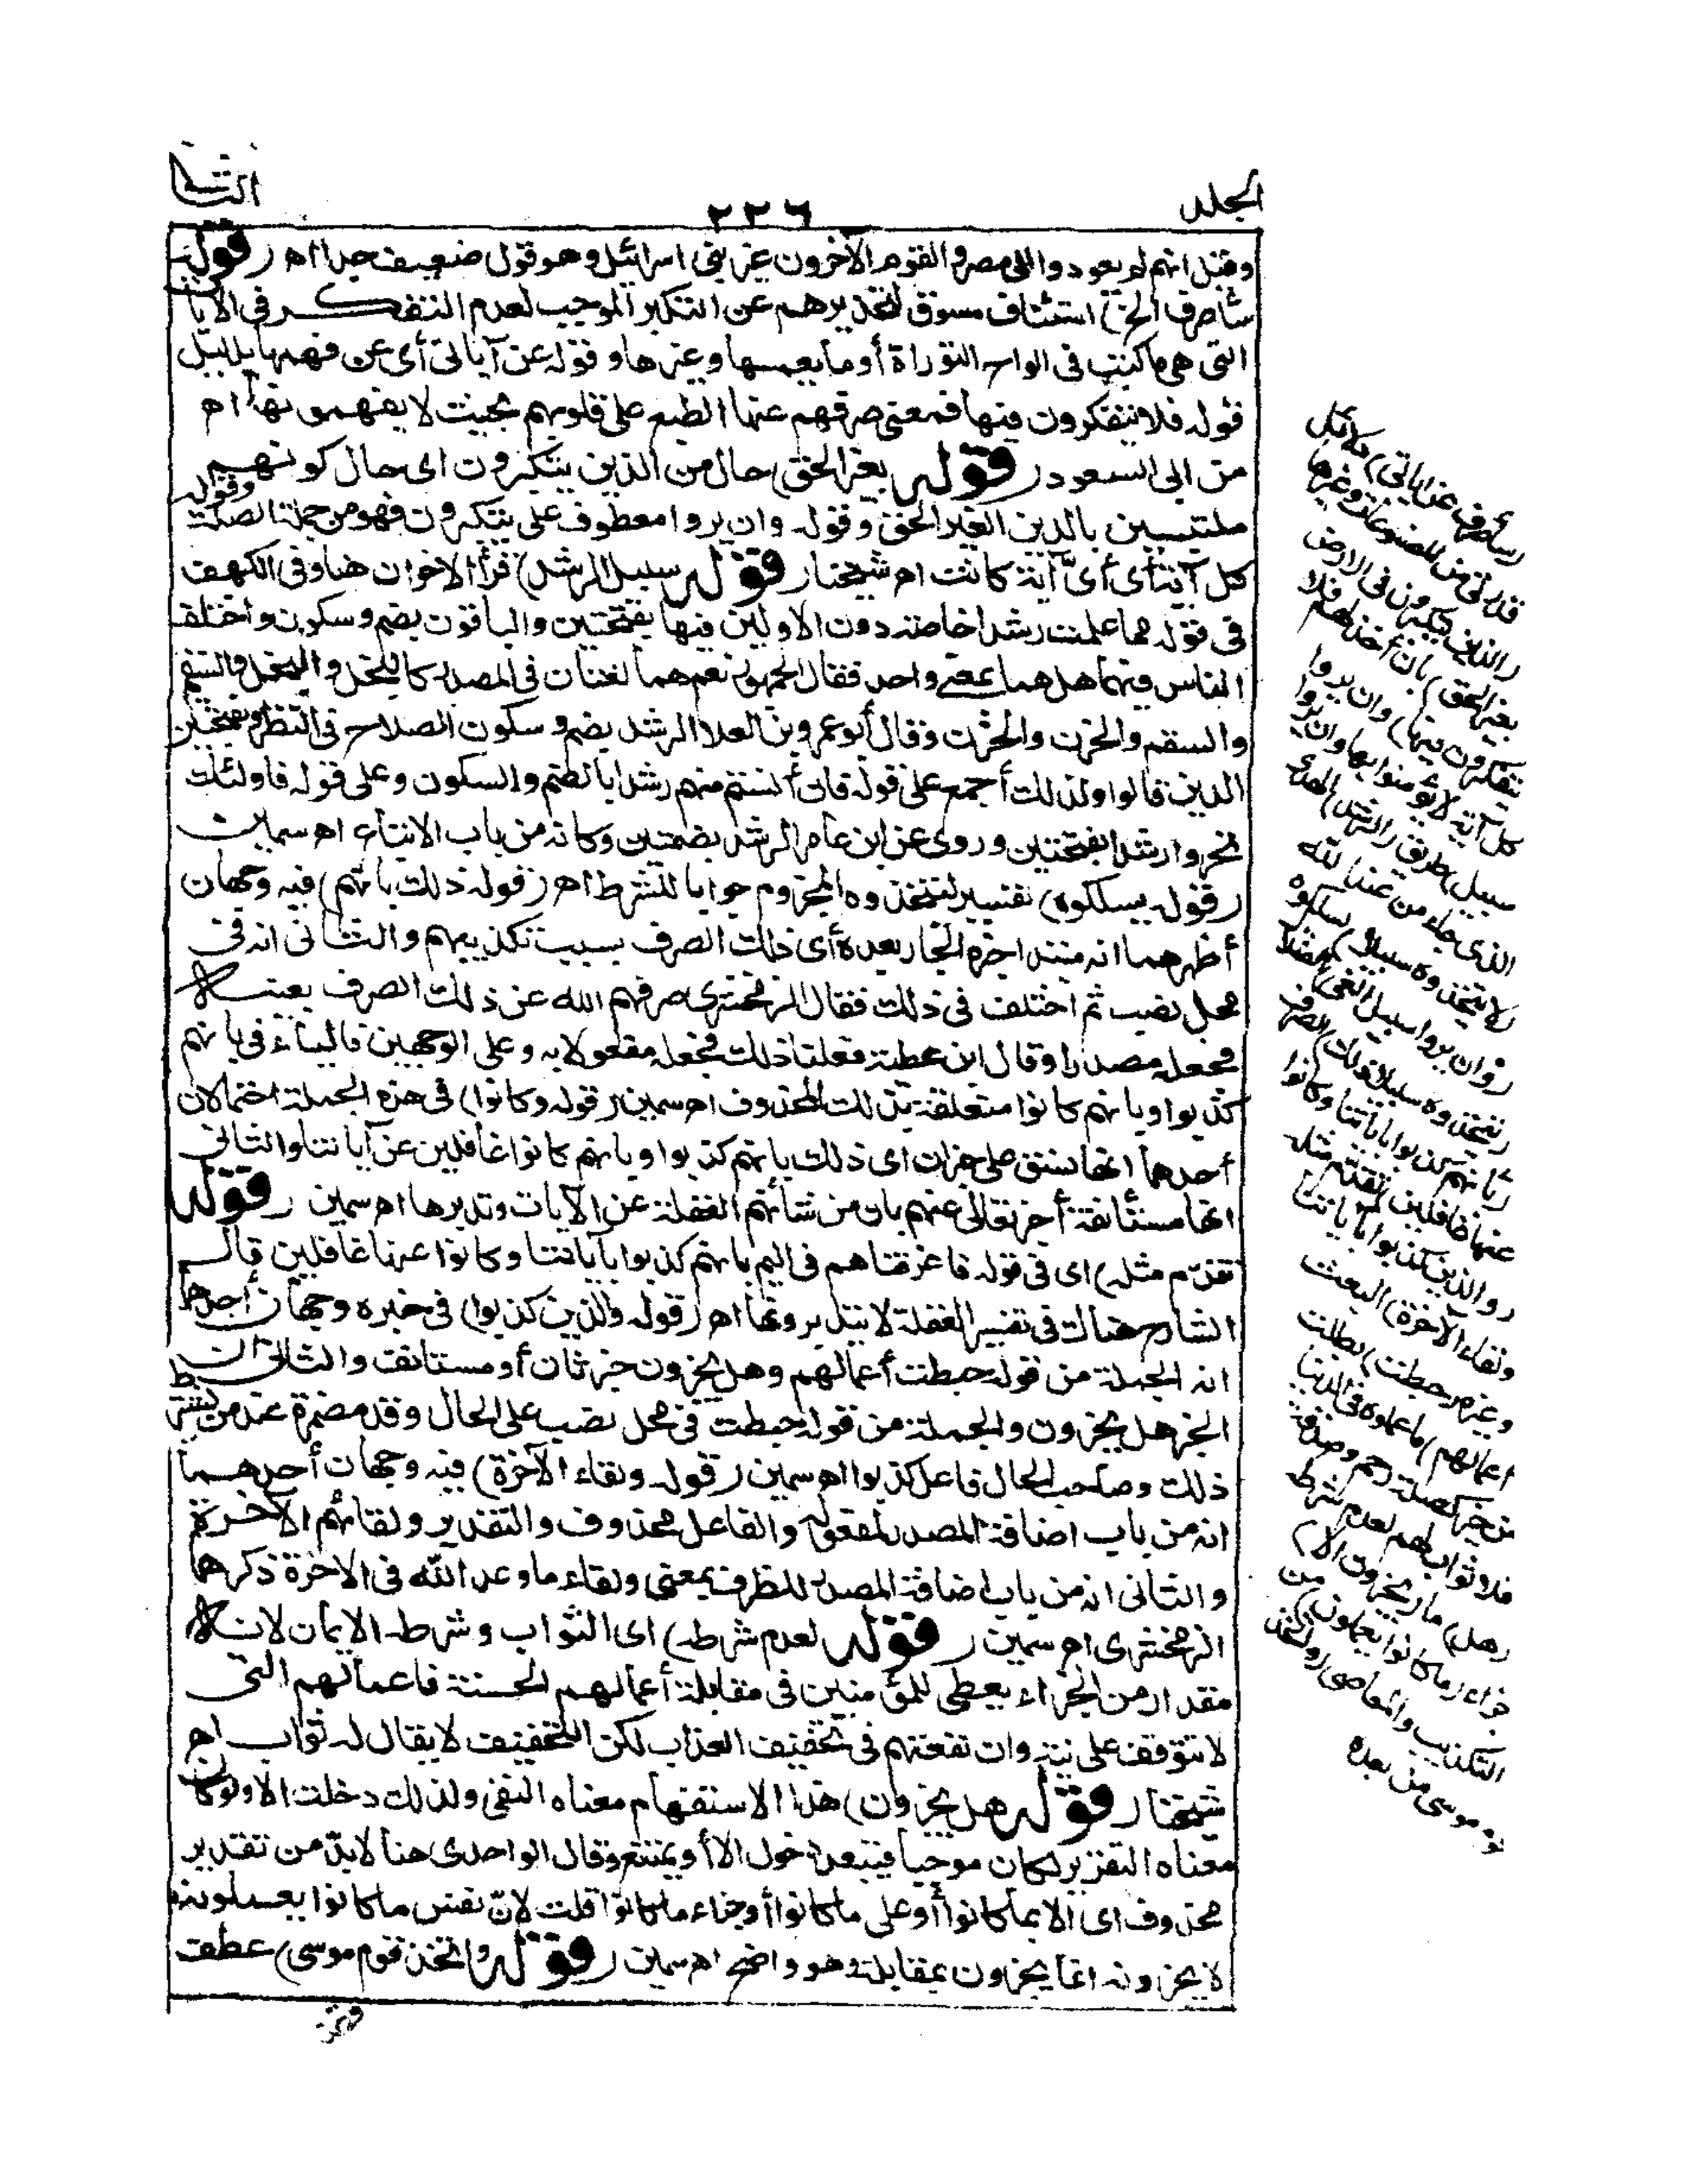 المجلد
٢٢٦
الثا
وقيل انهم لم يعودوا الى مصر والقوم الآخرون غير بني اسرائيل وهو قول ضعيف جدا اه (قوله
سأصرف الخ) استئناف مسوق لتحذيرهم عن التكبر الموجب لعدم التفكر في الآيات
التي هي ما كتب في الواح التوراة أو ما يعمها وغيرها وقوله عن آياتي أي عن فهمها بدليل
قوله فلا يتفكرون فيها فمعنى صرفهم عنها الطبع على قلوبهم بحيث لا يفهمونها اه
من ابي السعود (قوله بغير الحق) حال من الذين يتكبرون اى حال كونهم
ملتبسين بالدين الغير الحق وقوله وان يروا معطوف على يتكبرون فهو من جملة الصلة وقوله
كل آية أي أيّ آية كانت اه شيخنا (قوله سبيل الرشد) قرأ الاخوان هنا وفي الكهف
في قوله مما علمت رشدا خاصة دون الاولين فيها بفتحتين والباقون بضم وسكون واختلف
الناس فيهما هل هما بمعنى واحد فقال الجمهور نعم هما لغتان في المصدر كالبخل والبخل والسقم
والسقم والحزن والحزن وقال أبو عمرو بن العلا الرشد بضم وسكون الصلاح في النظر وبفتحتين
الدين قالوا ولذلك أجمع على قوله فان آنستم منهم رشدا بالضم والسكون وعلى قوله فاولئك
تحروا رشدا بفتحتين وروى عن ابن عامر الرشد بضمتين وكانه من باب الاتباع اه سمين
(قوله يسلكوه) تفسير لتتخذوه المجزوم جوابا للشرط اه (قوله ذلك بانهم) فيه وجهان
أظهرهما انه مبتدا خبره الجار بعده أي ذلك الصرف بسبب تكذيبهم والثاني انه في
محل نصب ثم اختلف في ذلك فقال الزمخشري صرفهم الله عن ذلك الصرف بعينه
فجعله مصدرا وقال ابن عطية فعلنا ذلك فجعله مفعولا به وعلى الوجهين فالباء في بانهم
كذبوا وبانهم كانوا متعلقة بذلك المحذوف اه سمين (قوله وكانوا) في هذه الجملة احتمالان
أحدهما انها نسق على خبر ان اى ذلك بانهم كذبوا وبانهم كانوا غافلين عن آياتنا والثاني
انها مستأنفة أخبر تعالى عنهم بان من شأنهم الغفلة عن الآيات وتدبرها اه سمين (قوله
تقدّم مثله) اى في قوله فاغرقناهم في اليم بانهم كذبوا بآياتنا وكانوا عنها غافلين قال
الشارح هناك في تفسير الغفلة لا يتدبرونها اه (قوله والذين كذبوا) في خبره وجهان أحدهما
انه الجملة من قوله حبطت أعمالهم وهل يجزون خبر ثان أو مستانف والثاني ان
الخبر هل يجزون والجملة من قوله حبطت في محل نصب على الحال وقد مضمرة عند من يشترط
ذلك وصاحب الحال فاعل كذبوا اه سمين (قوله ولقاء الآخرة) فيه وجهان أحدهما
انه من باب اضافة المصدر لمفعوله والفاعل محذوف والتقدير ولقائهم الآخرة
والثاني انه من باب اضافة المصدر للظرف بمعنى ولقاء ما وعد الله في الاخرة ذكرهما
الزمخشري اه سمين (قوله لعدم شرطه) اى الثواب وشرطه الايمان لانه
مقدار من الجزاء يعطى للمؤمنين في مقابلة أعمالهم الحسنة فاعمالهم التي
لا تتوقف على نية وان نفعتهم في تخفيف العذاب لكن التخفيف لا يقال له ثواب اه
شيخنا (قوله هل يجزون) هذا الاستفهام معناه النفي ولذلك دخلت الا ولو كان
معناه التقرير لكان موجبا فيبعد دخول الا أو يمتنع وقال الواحدى هنا لابدّ من تقدير
محذوف اى الا بما كانوا أو على ما كانوا أو جزاء ما كانوا قلت لانّ نفس ما كانوا يعملونه
لا يجزونه انما يجزون بمقابلته وهو واضح اه سمين (قوله واتخذ قوم موسى) عطف
(سأصرف عن آياتي) دلائل
قدرتي من المصنوعات وغيرها
(الذين يتكبرون في الارض
بغير الحق) بان أخذلهم فلا
يتفكرون فيها (وان يروا
كل آية لا يؤمنوا بها وان يروا
سبيل) طريق (الرشد) الهدى
الذي جاء من عند الله
(لا يتخذوه سبيلا) يسلكوه
(وان يروا سبيل الغي) الضلال
(يتخذوه سبيلا ذلك) الصرف
(بانهم كذبوا بآياتنا وكانوا
عنها غافلين) تقدّم مثله
(والذين كذبوا بآياتنا
ولقاء الآخرة) البعث
وغيره (حبطت) بطلت
(اعمالهم) ما عملوه في الدنيا
من خير كصلة رحم وصدقة
فلا ثواب لهم لعدم شرطه
(هل) ما (يجزون الا)
جزاء (ما كانوا يعملون) من
التكذيب والمعاصى (واتخذ
قوم موسى من بعده